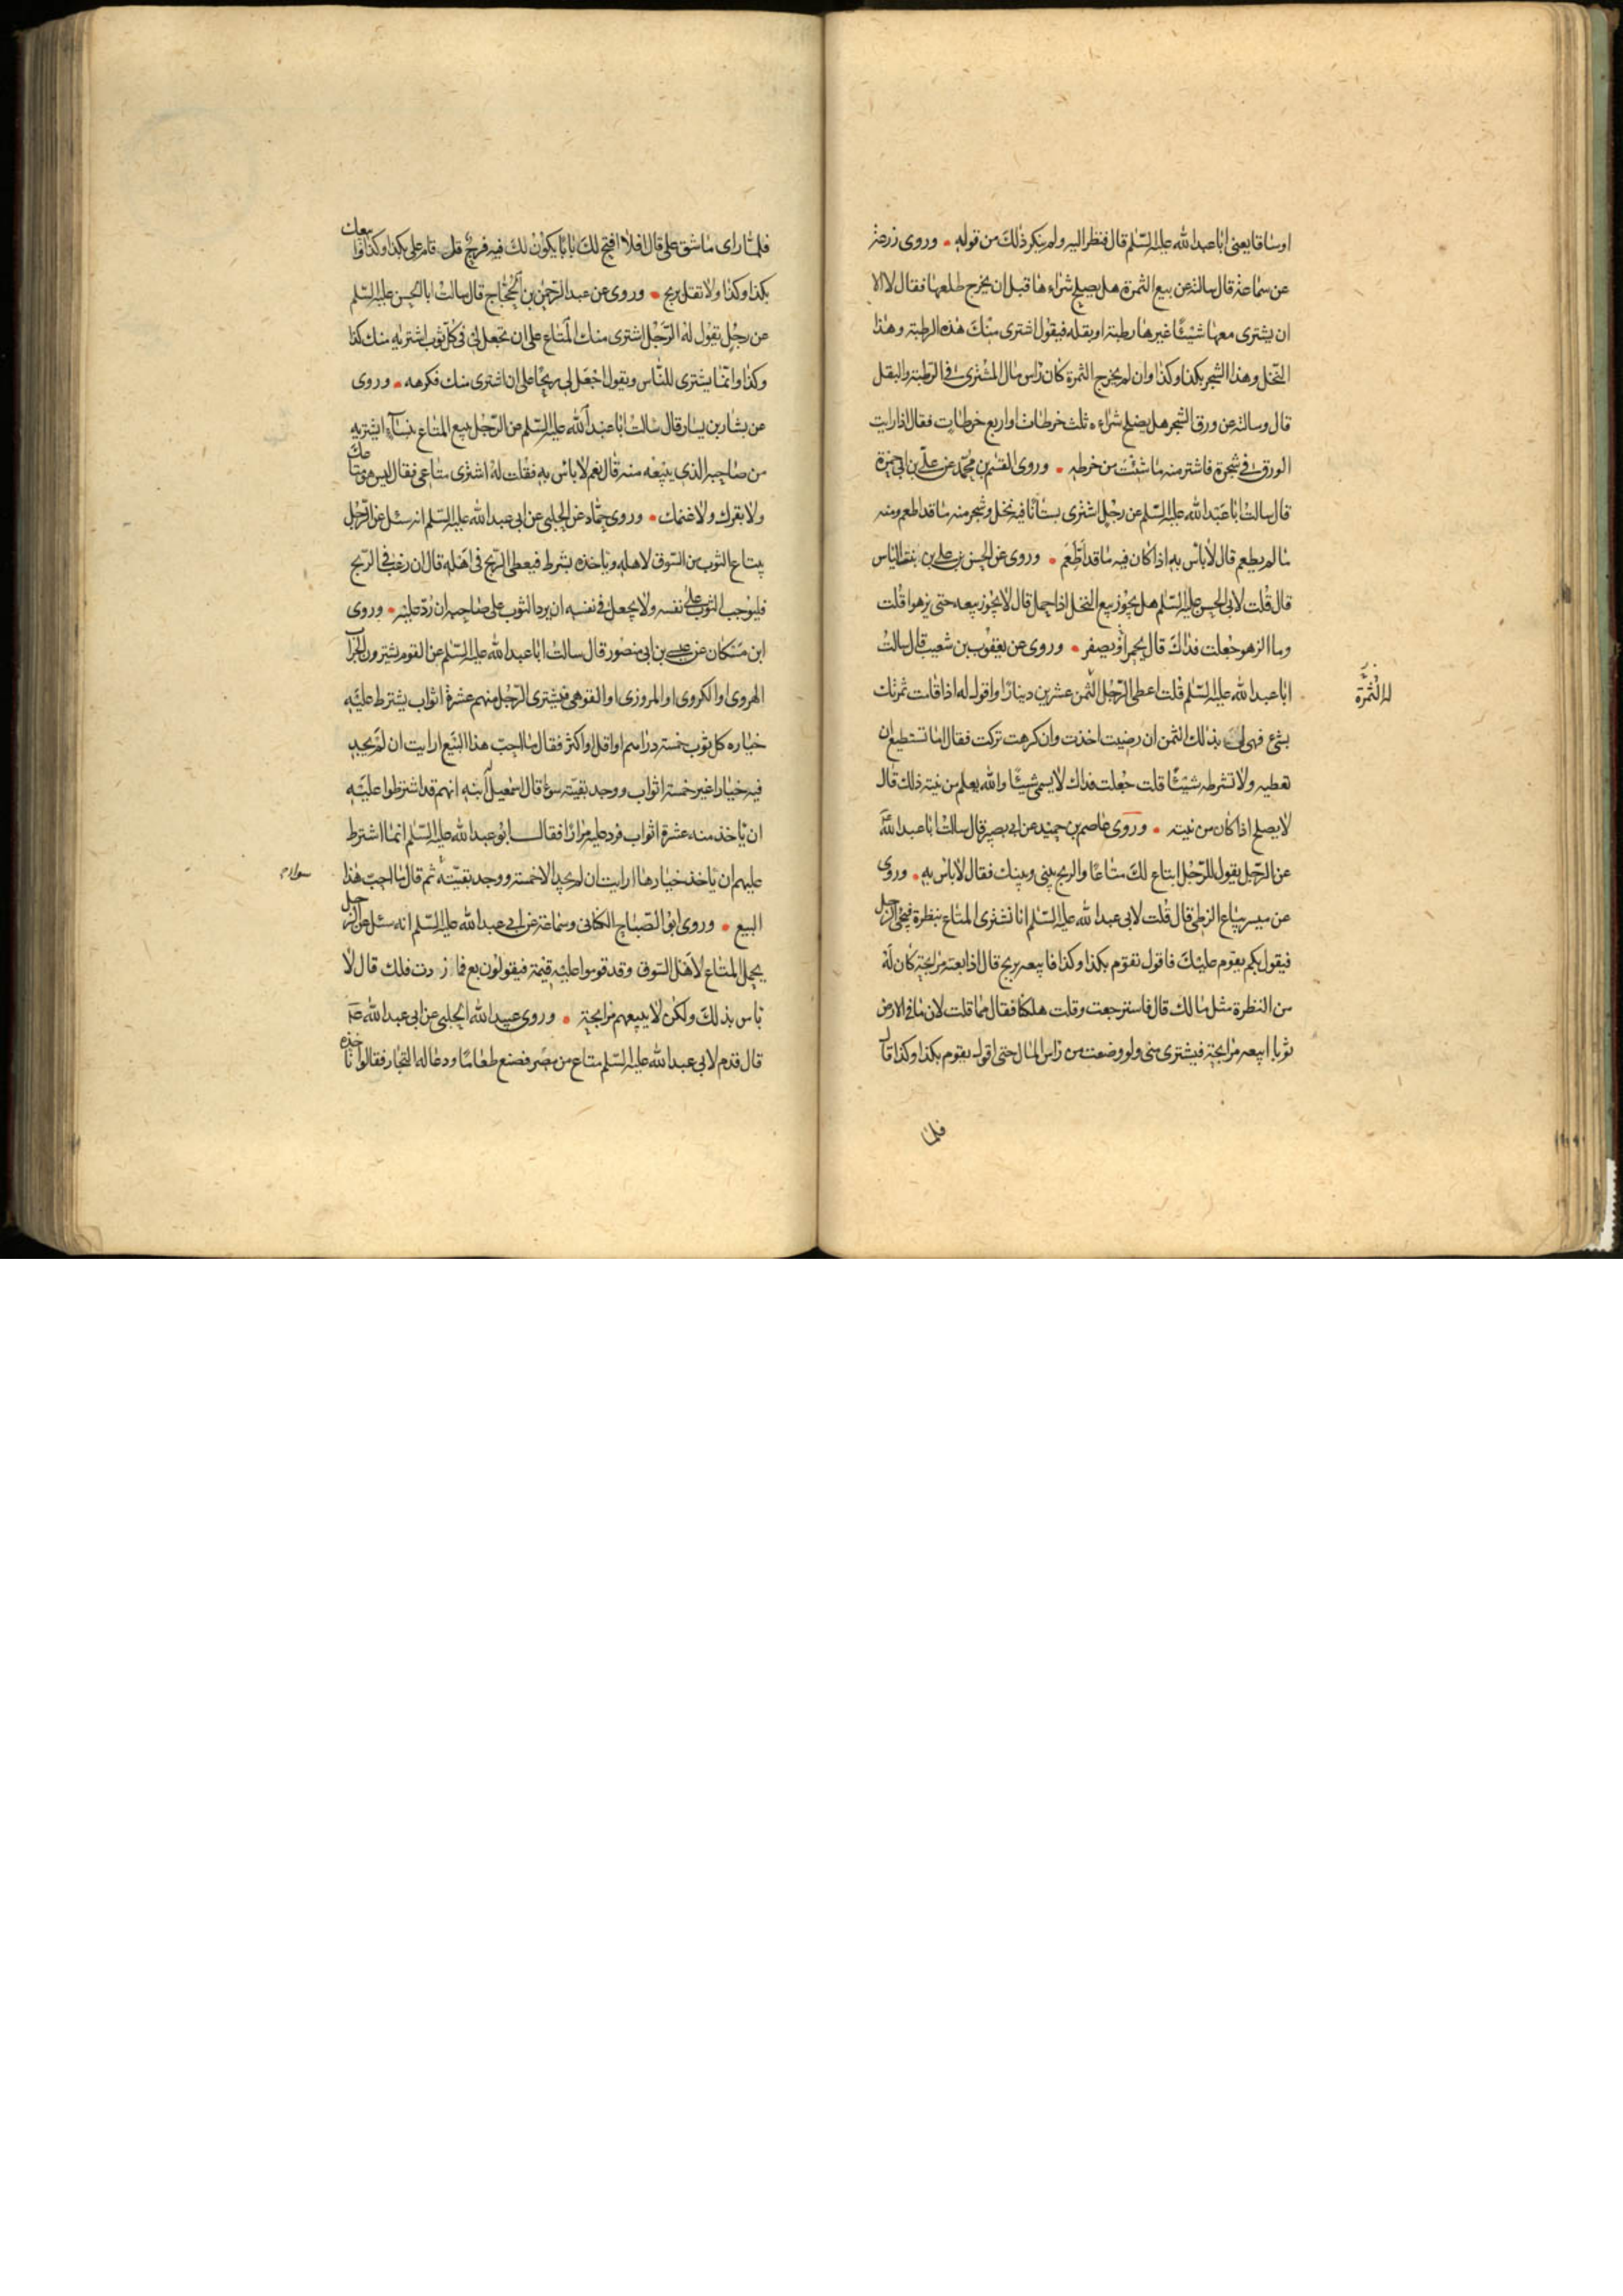 اوساقا يعنى ابا عبد الله عليه السّلم قال فنظر اليه ولم ينكر ذلك من قوله • وروى زرعة
عن سماعة قال سالته عن بيع الثمرة هل يصلح شراءها قبل ان يخرج طلعها فقال لا الا
ان يشترى معها شيئًا غيرها رطبة او بقله فيقول اشترى منك هذه الرطبة وهذا
النّخل وهذا الشجر بكذا وكذا وان لم يخرج الثمرة كان راس مال المشترى فى الرّطبة والبقل
قال وسالته عن ورق الشجر هل يصلح شراءه ثلث خرطات او اربع خرطات فقال اذا رايت
الورق فى شجرة فاشتر منه ما شئت من خرطه • وروى القسم بن محمّد عن علىّ بن ابى حمزة
قال سالت ابا عبد الله عليه السّلم عن رجل اشترى بستانًا فيه نخل وشجر منه ما قد اطعم ومنه
ما لم يطعم قال لا باس به اذا كان فيه ما قد اطعم • وروى عن الحسن بن على بن بنت الياس
قال قلت لابى الحسن عليه السّلم هل يجوز بيع النخل اذا حمل قال لا يجوز بيعه حتى يزهوا قلت
وما الزهو جعلت فداك قال يحمر او يصفر • وروى عن يعقوب بن شعيب قال سالت
ابا عبد الله عليه السّلم قلت اعطى الرّجل الثمن عشرين دينارًا واقول له اذا قامت ثمرتك
لهٔ الثمرة
بشئ فهى لى بذلك الثمن ان رضيت اخذت وان كرهت تركت فقال اما تستطيع ان
تعطيه ولا تشرطه شيئًا قلت جعلت فداك لا يسمى شيئًا والله يعلم من نيته ذلك قال
لا يصلح اذا كان من نيته • وروى عاصم بن حميد عن ابى بصير قال سالت ابا عبد الله
عن الرّجل يقول للرّجل ابتاع لك متاعًا والربح بينى وبينك فقال لا باس به • وروى
عن ميسر بياع الزطى قال قلت لابى عبد الله عليه السّلم انا نشترى المتاع بنظرة فيجئ الرجل
فيقول بكم يقوم عليك فاقول تقوم بكذا وكذا فابيعه بربح قال اذا بعته مرابحة كان له
من النظرة مثل ما لك قال فاسترجعت وقلت هلكنا فقال مما قلت لان ما فى الارض
ثوبا ابيعه مرابحة فيشترى منى ولو وضعت من راس المال حتى اقول يقوم بكذا وكذا قال
فلما
فلمّا راى ما شق على قال افلا افتح لك بابًا يكون لك فيه فرج قل قام على بكذا وكذا وابيعك
بكذا وكذا ولا تقل بربح • وروى عن عبد الرحمن بن الحجّاج قال سالت ابا الحسن عليه السّلم
عن رجل يقول له الرّجل اشترى منك المتاع على ان تجعل لى فى كلّ ثوب اشتريه منك كذا
وكذا وانما يشترى للنّاس ويقول اجعل لى ربحًا على ان اشترى منك فكرهه • وروى
عن بشار بن يسار قال سالت ابا عبد الله عليه السّلم عن الرّجل يبيع المتاع بنساء ايشتريه
من صاحبه الذى يبيعه منه قال نعم لا باس به فقلت له اشترى متاعى فقال ليس هو متاعك
ولا بقرك ولا غنمك • وروى حمّاد عن الحلبى عن ابى عبد الله عليه السّلم انه سئل عن الرّجل
يبتاع الثوب من السّوق لاهله وياخذه بشرط فيعطى الرّبح فى اهله قال ان رغب فى الرّبح
فليوجب الثوب على نفسه ولا يجعل فى نفسه ان يرد الثوب على صاحبه ان رُدّ عليه • وروى
ابن مسكان عن عيسى بن ابى منصور قال سالت ابا عبد الله عليه السّلم عن القوم يشترون الجراب
الهروى او الكروى او المروزى او القوهى فيشترى الرّجل منهم عشرة اثواب يشترط عليه
خياره كل ثوب خمسة دراهم او اقل او اكثر فقال ما احبّ هذا البيع ارايت ان لم يجد
فيه خيارا غير خمسة اثواب ووجد بقيته سواء قال اسمعيل ابنه انهم قد اشترطوا عليه
ان ياخذ منه عشرة اثواب فرد عليه مرارًا فقال ابو عبد الله عليه السّلم انما اشترط
عليهم ان ياخذ خيارها ارايت ان لم يجد الا خمسة ووجد بقيّته ثم قال ما احبّ هذا
البيع • وروى ابو الصّباح الكنانى وسماعة عن ابى عبد الله عليه السّلم انه سئل عن الرجل
يحمل المتاع لاهل السّوق وقد قوموا عليه قيمة فيقولون بع فما زدت فلك قال لا
باس بذلك ولكن لا يبيعهم مرابحة • وروى عبيد الله الحلبى عن ابى عبد الله ع
قال قدم لابى عبد الله عليه السّلم متاع من مصر فصنع طعامًا ودعا له التجار فقالوا ناخذه